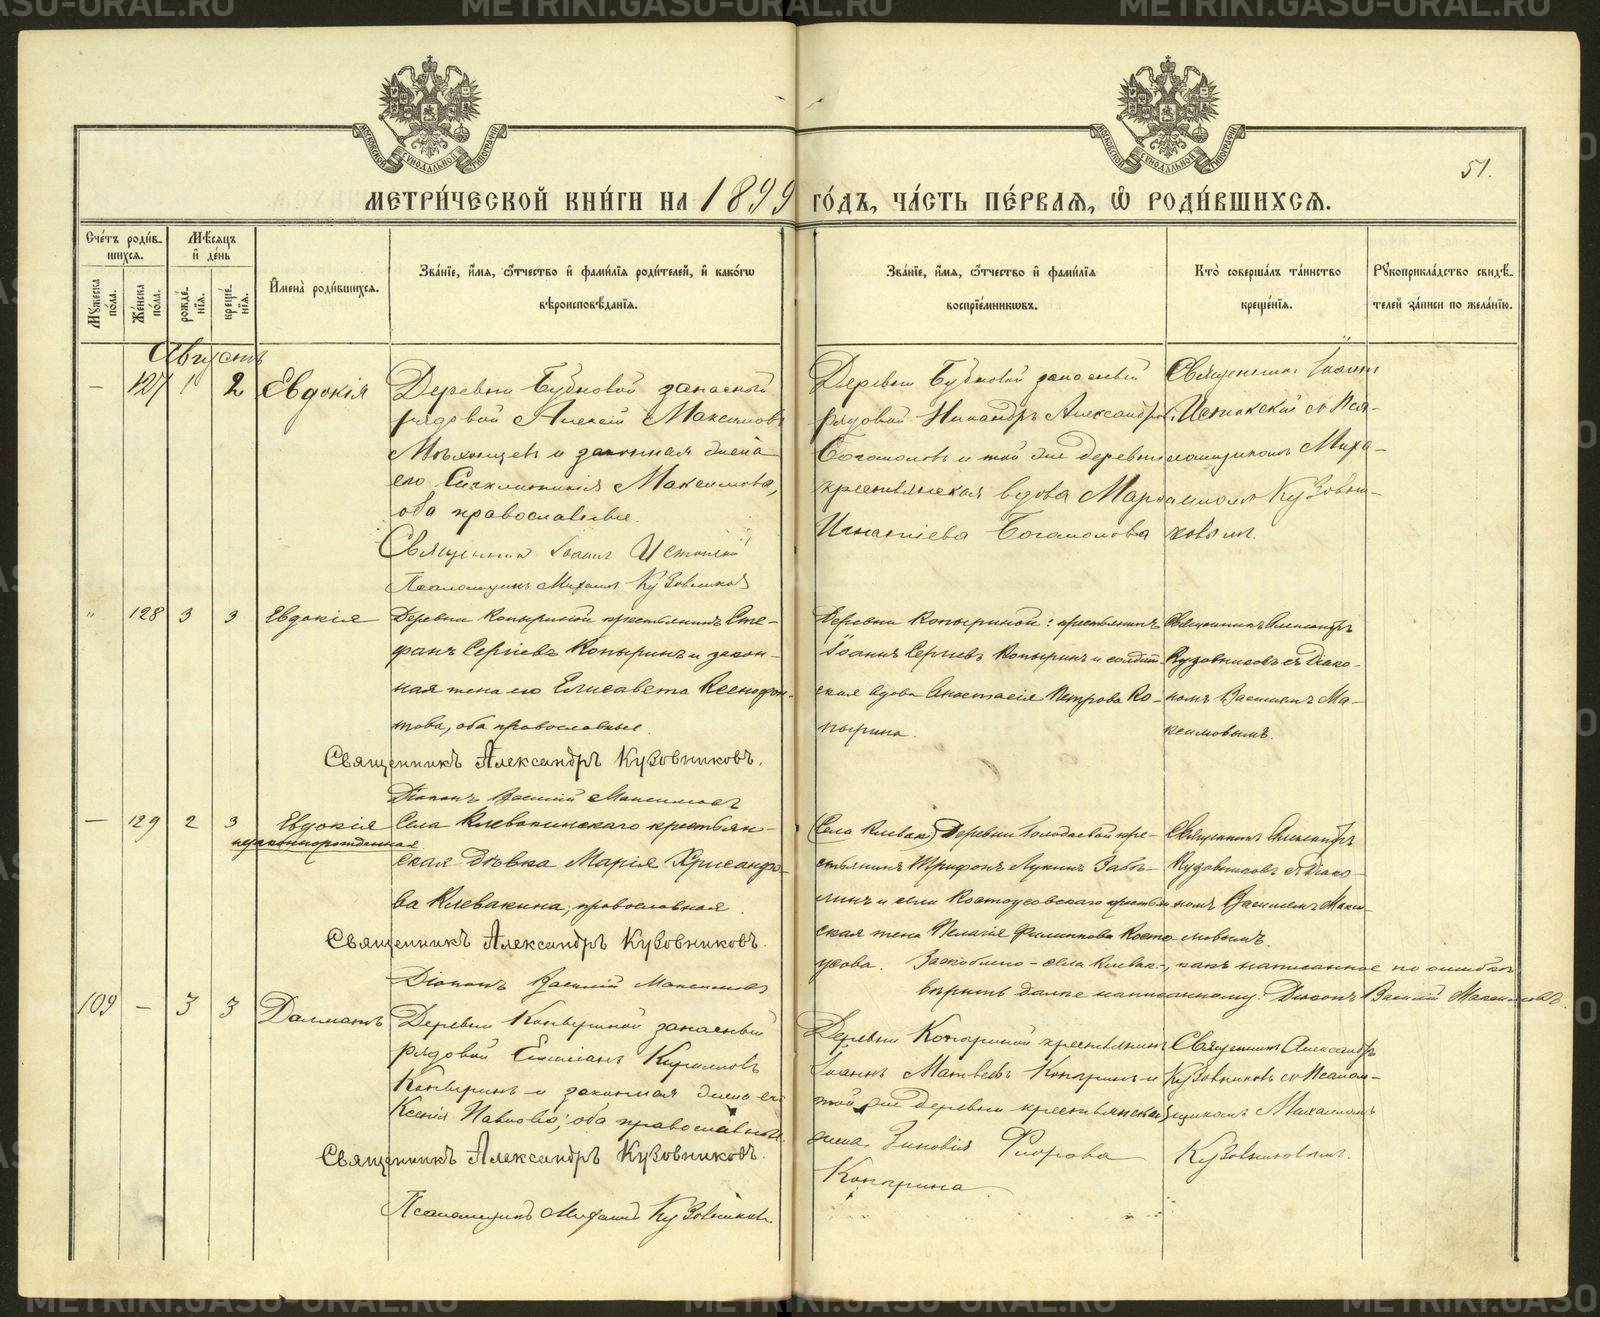 METRIKI.GASU-URAL.RU
МОСКОВСКОЙ СѴНОДАЛЬНОЙ ТИПОГРАФІИ
МОСКОВСКОЙ СѴНОДАЛЬНОЙ ТИПОГРАФІИ
51.
МЕТРИ́ЧЕСКОЙ КНИ́ГИ НА 1899 ГО́ДЪ, ЧА́СТЬ ПЕ́РВАЯ, Ѡ РОДИ́ВШИХСЯ.
Сче́тъ роди́вшихся.
Мѣ́сяцъ и де́нь
Мꙋжеска по́ла.
Же́нска по́ла.
рожде́нїѧ.
креще́нїѧ.
И҆мена̀ роди́вшихсѧ.
Зва́нїе, и҆́мѧ, ѻ҆́тчество и҆ фами́лїѧ роди́телей, и҆ како́гѡ
вѣроисповѣ́данїѧ.
Зва́нїе, и҆́мѧ, ѻ҆́тчество и҆ фами́лїѧ
воспрїе́мникѡвъ.
Кто̀ соверша́лъ та́инство
креще́нїѧ.
Рꙋкоприкла́дство свидѣ́телей за́писи по жела́нїю.
Августъ
— 127 1 2 Евдокія
Деревни Бубновой запасной
рядовой Алексій Максимовъ
и законная жена
его Максимова,
оба православные.
Священникъ Іоаннъ Истокскій
Псаломщикъ Михаилъ Кузовниковъ
Деревни Бубновой запасный
рядовой Никандръ Александровъ
Богомоловъ и той же деревни
крестьянская вдова Марѳа
Игнатіева Богомолова
Священникъ Іоаннъ
Истокскій съ Псаломщикомъ Михаиломъ Кузовниковымъ.
„ 128 3 3 Евдокія
Деревни Копыриной крестьянинъ Сте-
фанъ Сергіевъ Копыринъ и закон-
ная жена его Елисавета Ксенофон-
това, оба православные.
Священникъ Александръ Кузовниковъ.
Діаконъ Василій Максимовъ
Деревни Копыриной: крестьянинъ
Іоаннъ Сергіевъ Копыринъ и солдат-
ская вдова Анастасія Петрова Ко-
пырина.
Священникъ Александръ
Кузовниковъ съ Діако-
номъ Василіемъ Ма-
ксимовымъ.
— 129 2 3 Евдокія
незаконнорожденная
Села Клевакинскаго крестьян-
ская дѣвка Марія Хрисанфо-
ва Клевакина, православная.
Священникъ Александръ Кузовниковъ.
Діаконъ Василій Максимовъ
(Села Клевак) Деревни Холодаевой кре-
стьянинъ Трифонъ Лукинъ Забѣ-
линъ и села Костоусовскаго крестьян-
ская жена Пелагія Филиппова Косто-
усова. Заскоблено – села Клевак-, какъ написанное по ошибкѣ
вѣрить далѣе написанному. Діаконъ Василій Максимовъ.
Священникъ Александръ
Кузовниковъ съ Діако-
номъ Василіемъ Макси-
мовымъ.
109 — 3 3 Далматъ
Деревни Копыриной запасный
рядовой Емеліанъ Кирилловъ
Копыринъ и законная жена его
Ксенія Павлова; оба православные.
Священникъ Александръ Кузовниковъ.
Псаломщикъ Михаилъ Кузовниковъ.
Деревни Копыриной крестьянинъ
Іоаннъ Матвѣевъ Копыринъ и
той же деревни крестьянская
жена Зиновія Флорова
Копырина.
Священникъ Александръ
Кузовниковъ съ Псалом-
щикомъ Михаиломъ
Кузовниковымъ.